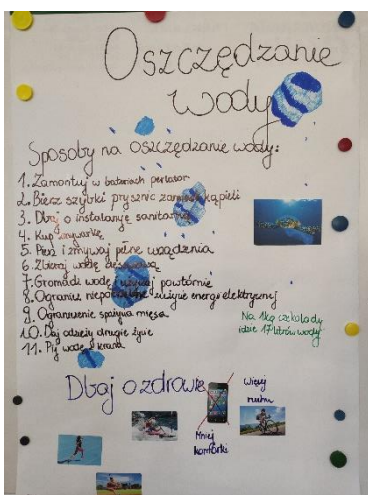 Oszczędzanie
wody
Sposoby na oszczędzanie wody:
1. Zamontuj w bateriach perlator
2. Bierz szybki prysznic zamiast kąpieli
3. Dbaj o instalację sanitarną
4. Kup zmywarkę
5. Pierz i zmywaj pełne urządzenia
6. Zbieraj wodę deszczową
7. Gromadź wodę i używaj powtórnie
8. Ogranicz niepotrzebne zużycie energii elektrycznej
9. Ograniczenie spożycia mięsa
10. Daj odzieży drugie życie
11. Pij wodę z kranu
Na 1kg czekolady
idzie 17 litrów wody
Dbaj o zdrowie
Więcej
ruchu
Mniej
komórki